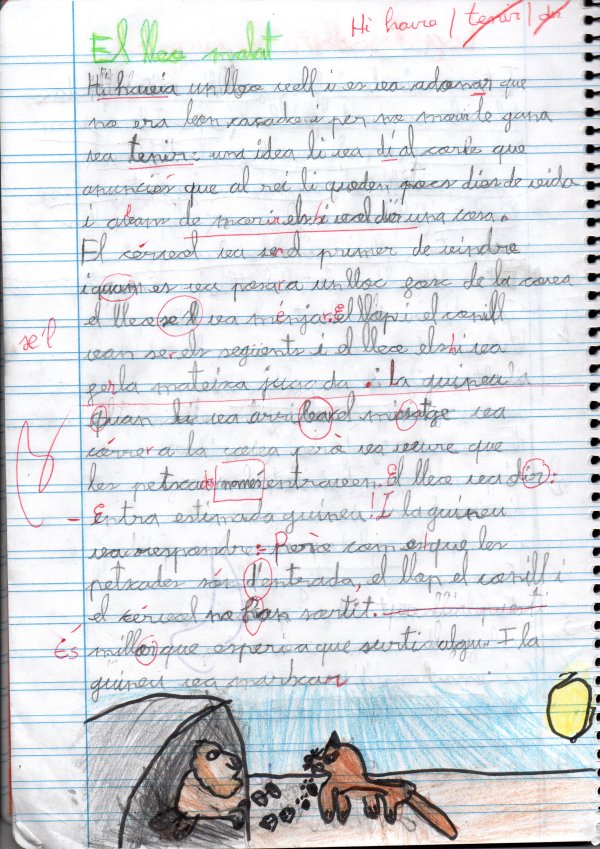 Hi havia / tenir / dir
El lleo malat
Hi havia un lleo vell i es va adonar que
no era bon casador i per no morir de gana
va tenir: una idea li va dí al corb que
anunciés que al rei li queden pocs dies de vida
i abans de morir els hi vol dir una cosa.
El cérvol va ser el primer de vindre
i quan es va posar a un lloc fosc de la cova
el lleo se l va menjar. El llop i el conill
se'l
van ser els següents i el lleo els hi va
fer la mateixa jugada. i La guineu
Quan li va arribar el misatge va
córrer a la cova però va veure que
les petxades només entraven. El lleo va dir:
- Entra estimada guineu! I la guineu
va respondre: Però com es que les
petxades són d'enterada, el llop el conill i
el cérvol no han sortit.
És millor que esperi a que surti algú. I la
guineu va marxar